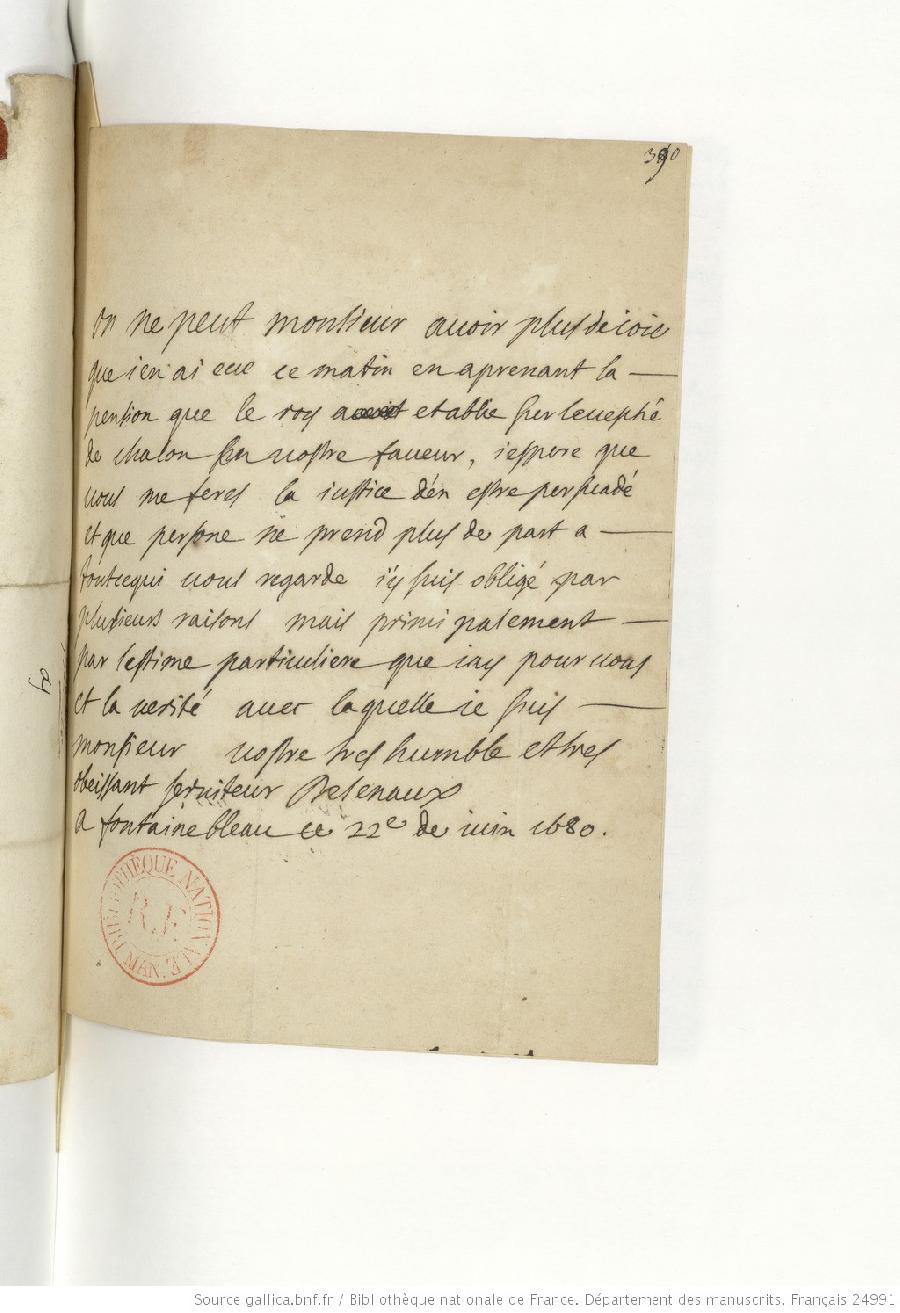 390
on ne peut monsieur avoir plus de ioie
que i'en ai eue ce matin en aprenant la —
pension que le roy a etablie sur leuesché
de chalon en vostre faueur, i'espere que
vous me feres la iustice d'en estre persuadé
et que persone ne prend plus de part a —
toutcequi vous regarde i'y suis obligé par
plusieurs raisons mais principalement —
par l'estime particuliere que iay pour vous
et la verité avec laquelle ie suis —
monsieur vostre tres humble et tres
obeissant seruiteur
A fontainebleau ce 22e de iuin 1680.
BIBLIOTHEQUE NATIONALE MAN.
R.F.
Source gallica.bnf.fr / Bibliothèque nationale de France. Département des manuscrits. Français 24991